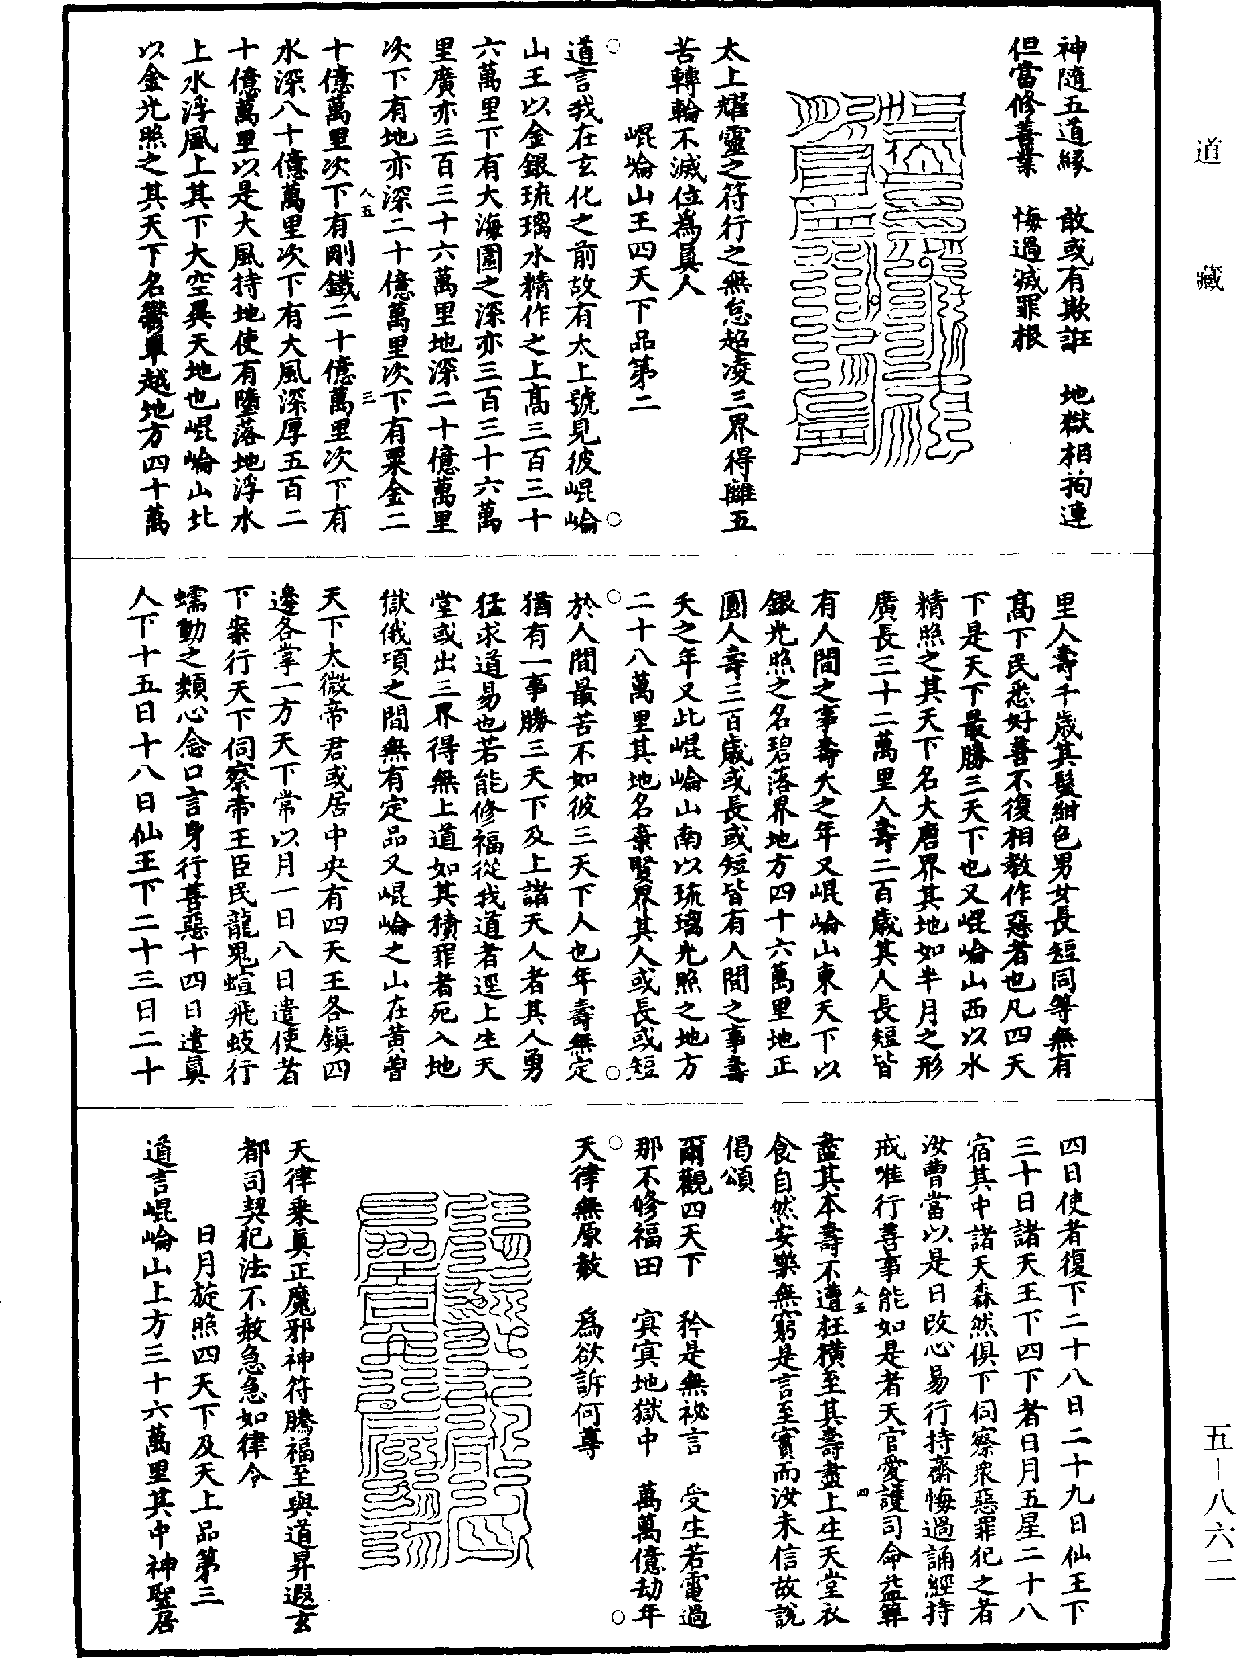 道藏
五—八六二
神隨五道緣　敢或有欺誑　地獄相拘連
但當修善業　悔過滅罪根
太上耀靈之符行之無怠超凌三界得離五
苦轉輪不滅位為真人
崐崘山王四天下品第二
道言我在玄化之前故有太上號見彼崐崘
山王以金銀琉璃水精作之上高三百三十
六萬里下有大海圍之深亦三百三十六萬
里廣亦三百三十六萬里地深二十億萬里
次下有地亦深二十億萬里次下有粟金二
十億萬里次下有剛鐵二十億萬里次下有
水深八十億萬里次下有大風深厚五百二
十億萬里以是大風持地使有墮落地浮水
上水浮風上其下大空與天地也崐崘山北
以金光照之其天下名鬱單越地方四十萬
人五
三
里人壽千歲其髮紺色男女長短同等無有
高下民悉好善不復相教作惡者也凡四天
下是天下最勝三天下也又崐崘山西以水
精照之其天下名大唐界其地如半月之形
廣長三十二萬里人壽二百歲其人長短皆
有人間之事壽夭之年又崐崘山東天下以
銀光照之名碧落界地方四十六萬里地正
圓人壽三百歲或長或短皆有人間之事壽
夭之年又此崐崘山南以琉璃光照之地方
二十八萬里其地名棄賢界其人或長或短
於人間最苦不如彼三天下人也年壽無定
猶有一事勝三天下及上諸天人者其人勇
猛求道易也若能修福從我道者逕上生天
堂或出三界得無上道如其積罪者死入地
獄俄頃之間無有定品又崐崘之山在黃曾
天下太微帝君或居中央有四天王各鎮四
邊各掌一方天下常以月一日八日遣使者
下案行天下伺察帝王臣民龍鬼蝖飛蚑行
蠕動之類心念口言身行善惡十四日遣真
人下十五日十八日仙王下二十三日二十
四日使者復下二十八日二十九日仙王下
三十日諸天王下四下者日月五星二十八
宿其中諸天森然俱下伺察眾惡罪犯之者
汝曹當以是日改心易行持齋悔過誦經持
戒唯行善事能如是者天官愛護司命益筭
盡其本壽不遭枉橫至其壽盡上生天堂衣
食自然安樂無窮是言至實而汝未信故說
偈頌
人五
四
爾觀四天下　矜是無祕言　受生若電過
那不修福田　冥冥地獄中　萬萬億劫年
天律無原赦　為欲訴何尊
天律乘真正魔邪神符騰福至與道昇遐玄
都司契犯法不赦急急如律令
日月旋照四天下及天上品第三
道言崐崘山上方三十六萬里其中神聖居